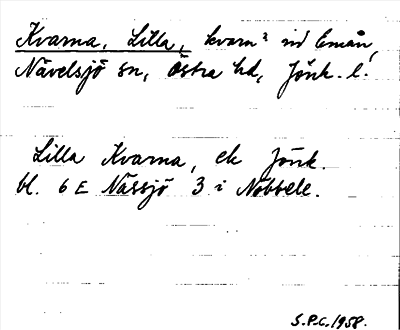 Kvarna, Lilla, kvarn² vid Emån,
Nävelsjö sn, Östra hd, Jönk. l.
Lilla Kvarna, ek Jönk.
bl. 6 E Nässjö 3 i Nobbele.
S.P.C. 1958.